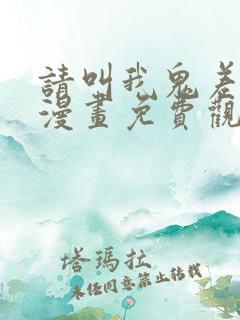 請叫我鬼差
漫畫免費觀
塔瑪拉
未經同意禁止轉載